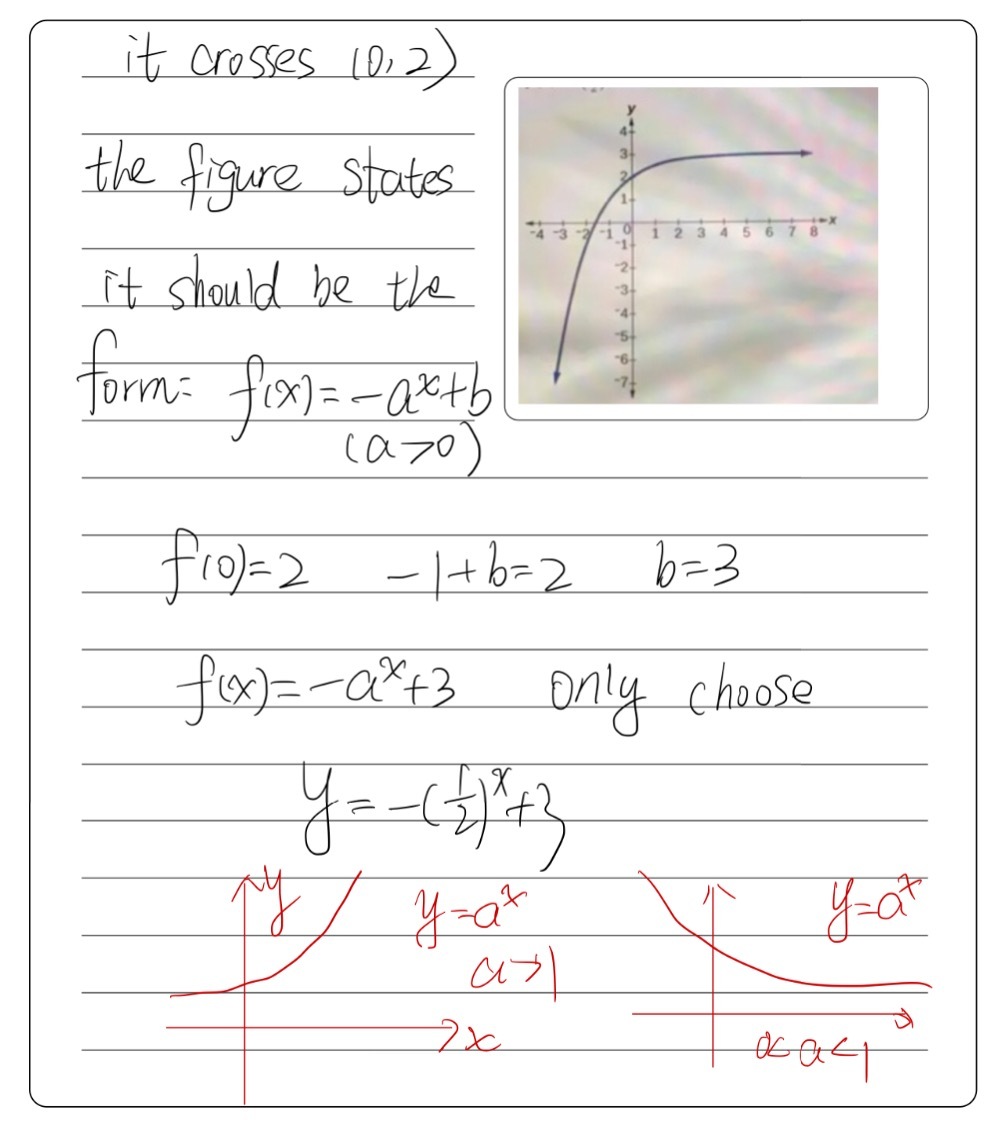 it crosses (0,2)
the figure states
it should be the
form: f(x)=-aˣ+b
(a>0)
y
4
3
2
1
-4 -3 -2 -1 0 1 2 3 4 5 6 7 8 x
-1
-2
-3
-4
-5
-6
-7
f(0)=2 -1+b=2 b=3
f(x)=-aˣ+3 only choose
y=-(1/2)ˣ+3
y y=aˣ y=aˣ
a>1
x 0<a<1